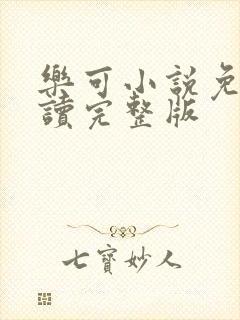 樂可小説免
讀完整版
七寶妙人